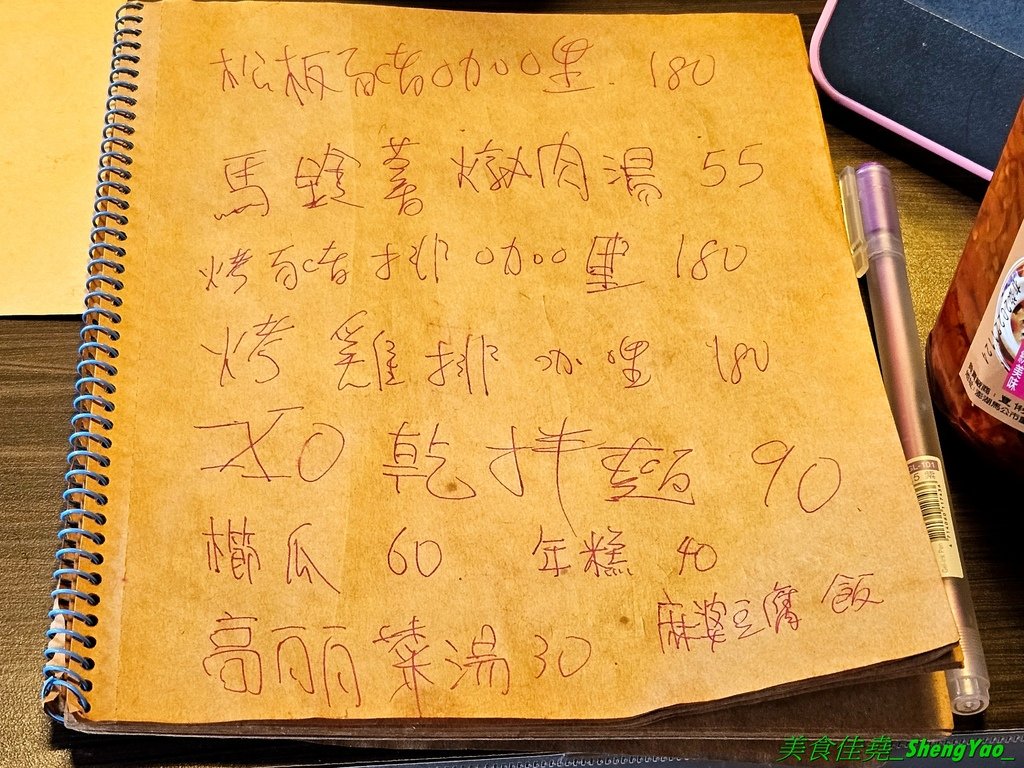 松板豬咖哩 180
馬鈴薯燉肉湯 55
烤豬排咖哩 180
烤雞排咖哩 180
乾拌麵 90
櫛瓜 60 年糕 40
高麗菜湯 30
麻婆豆腐飯
美味
澎湖馬公市
美食佳堯_ShengYao_